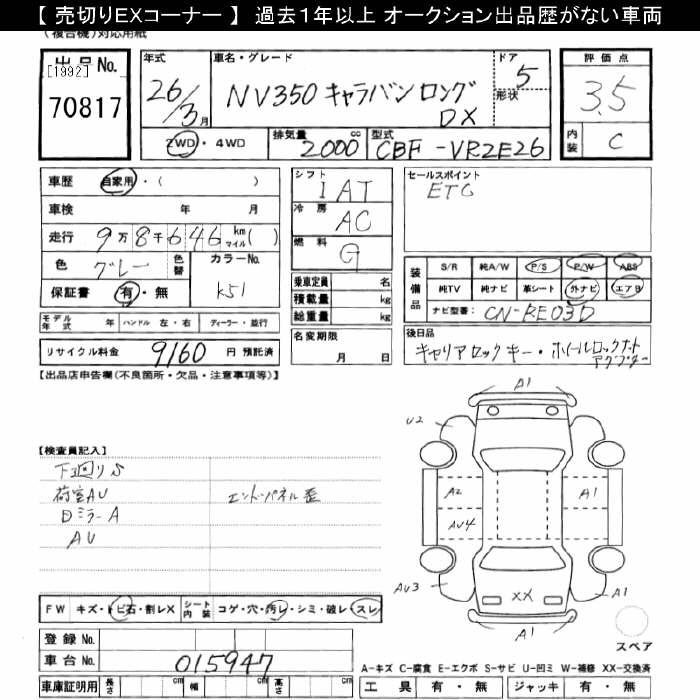 【 売切りEXコーナー 】 過去１年以上 オークション出品歴がない車両
(複合機)対応用紙
出品No.
[1992]
70817
年式
26/3月
車名・グレード
NV350 キャラバン ロング
DX
ドア
5
形状
評価点
3.5
内装
C
2WD・4WD
排気量
2000 cc
型式
CBF-VR2E26
車歴
自家用・( )
車検 年 月
走行 9万8千646 km マイル( )
色
グレー
色替
カラーNo.
K51
保証書 有・無
シフト
IAT
冷房
AC
燃料
G
乗車定員 名
積載量 kg
総重量 kg
名変期限
月 日
セールスポイント
ETC
装備品
S/R 純A/W P/S P/W ABS
純TV 純ナビ 革シート 外ナビ エアB
ナビ型番: CN-RE03D
モデル年式 年 ハンドル 左・右 ディーラー・並行
リサイクル料金 9160 円 預託済
後日品
キャリアロックキー・ホイールロックナット
アダプター
【出品店申告欄(不良箇所・欠品・注意事項等)】
【検査員記入】
下廻りS
荷室AU
Dミラー A
AU
エンドパネル歪
A1
U2
A2
AU4
A1
AU3
XX
A1
A1
スペア
FW キズ・トビ石・割レX
シート内装 コゲ・穴・汚レ・シミ・破レ・スレ
登録No.
車台No. 015947
車庫証明用 長さ cm 幅 cm 高さ cm
A-キズ C-腐食 E-エクボ S-サビ U-凹ミ W-補修 XX-交換済
工具 有・無 ジャッキ 有・無